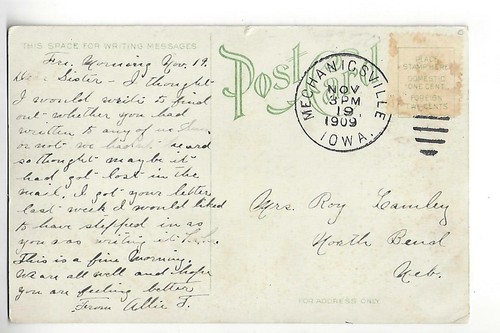 THIS SPACE FOR WRITING MESSAGES
Fri. Morning Nov. 19.
Dear Sister - I thought
I would write to find
out whether you had
written to any of us
or not we heard
so thought maybe it
had got lost in the
mail. I got your letter
last week I would liked
to have stepped in as
you was writing it
This is a fine morning.
We are all well and hope
you are feeling better
From Allie F.
Post Card
MECHANICSVILLE
NOV
3PM
19
1909
IOWA.
PLACE
STAMP HERE
DOMESTIC
ONE CENT
FOREIGN
TWO CENTS
Mrs. Roy
North Bend
Neb.
FOR ADDRESS ONLY